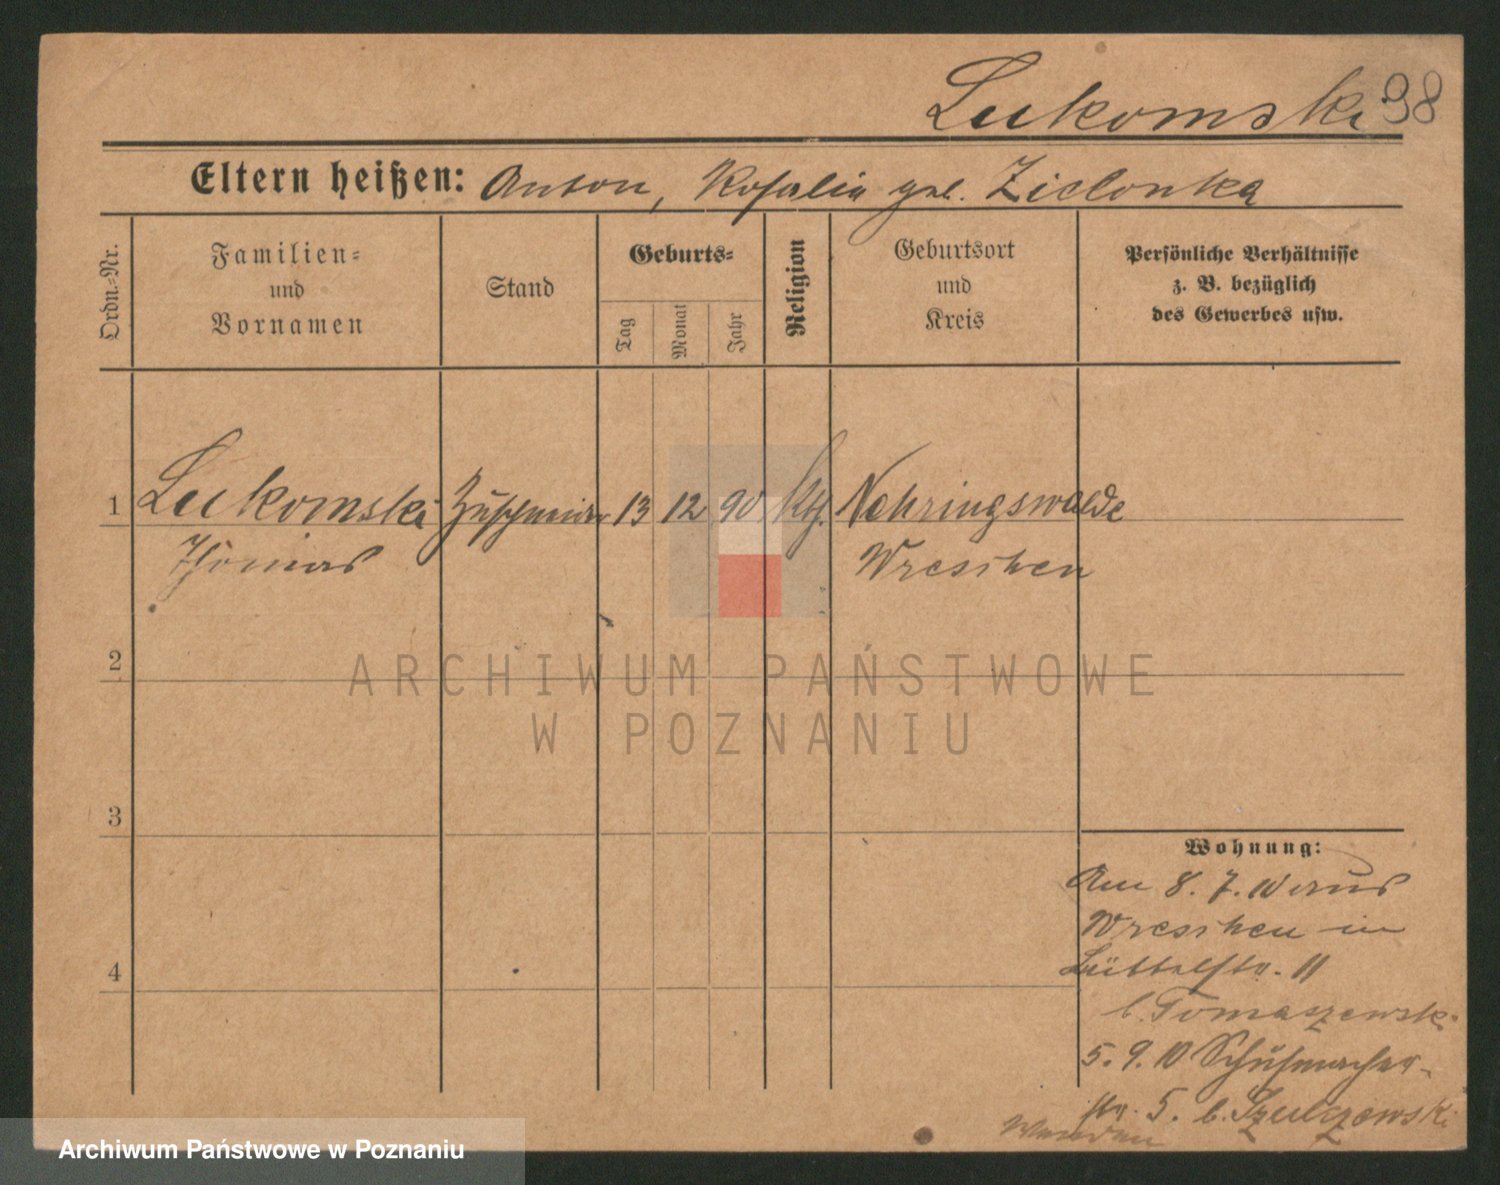 Lukomski 98
Eltern heißen: Anton, Rosalia geb. Zielonka
Ordn.-Nr.
Familien-
und
Vornamen
Stand
Geburts-
Tag
Monat
Jahr
Religion
Geburtsort
und
Kreis
Persönliche Verhältnisse
z. B. bezüglich
des Gewerbes usw.
1 Lukomski Zuschneider 13 12 90 kth. Nehringswalde
Thomas Wreschen
2
ARCHIWUM PAŃSTWOWE
W POZNANIU
3
4
Wohnung:
Am 8. 7. 10 aus
Wreschen in
Büttelstr. 11
b. Tomaszewski
5. 9. 10 Schuhmacher-
str. 5. b. Szulczewski
Archiwum Państwowe w Poznaniu